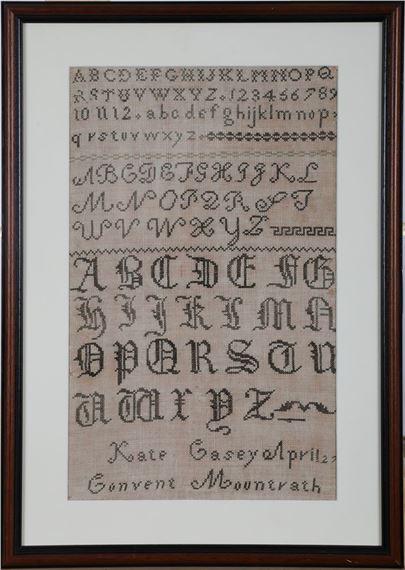 ABCDEFGHIJKLMNOPQ
RSTUVWXYZ. 123456789
10 11 12. abcdefghijklmnop
qrstuvwxyz.
ABCDEFGHIJKL
MNOPQRST
UVWXYZ
ABCDEFG
HIJKLMN
OPQRSTU
UWXYZ
Kate Casey April
Convent Mountrath